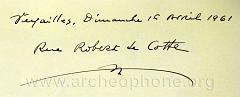 Versailles, Dimanche 16 Avril 1961
Rue Robert de Cotte
www.archeophone.org